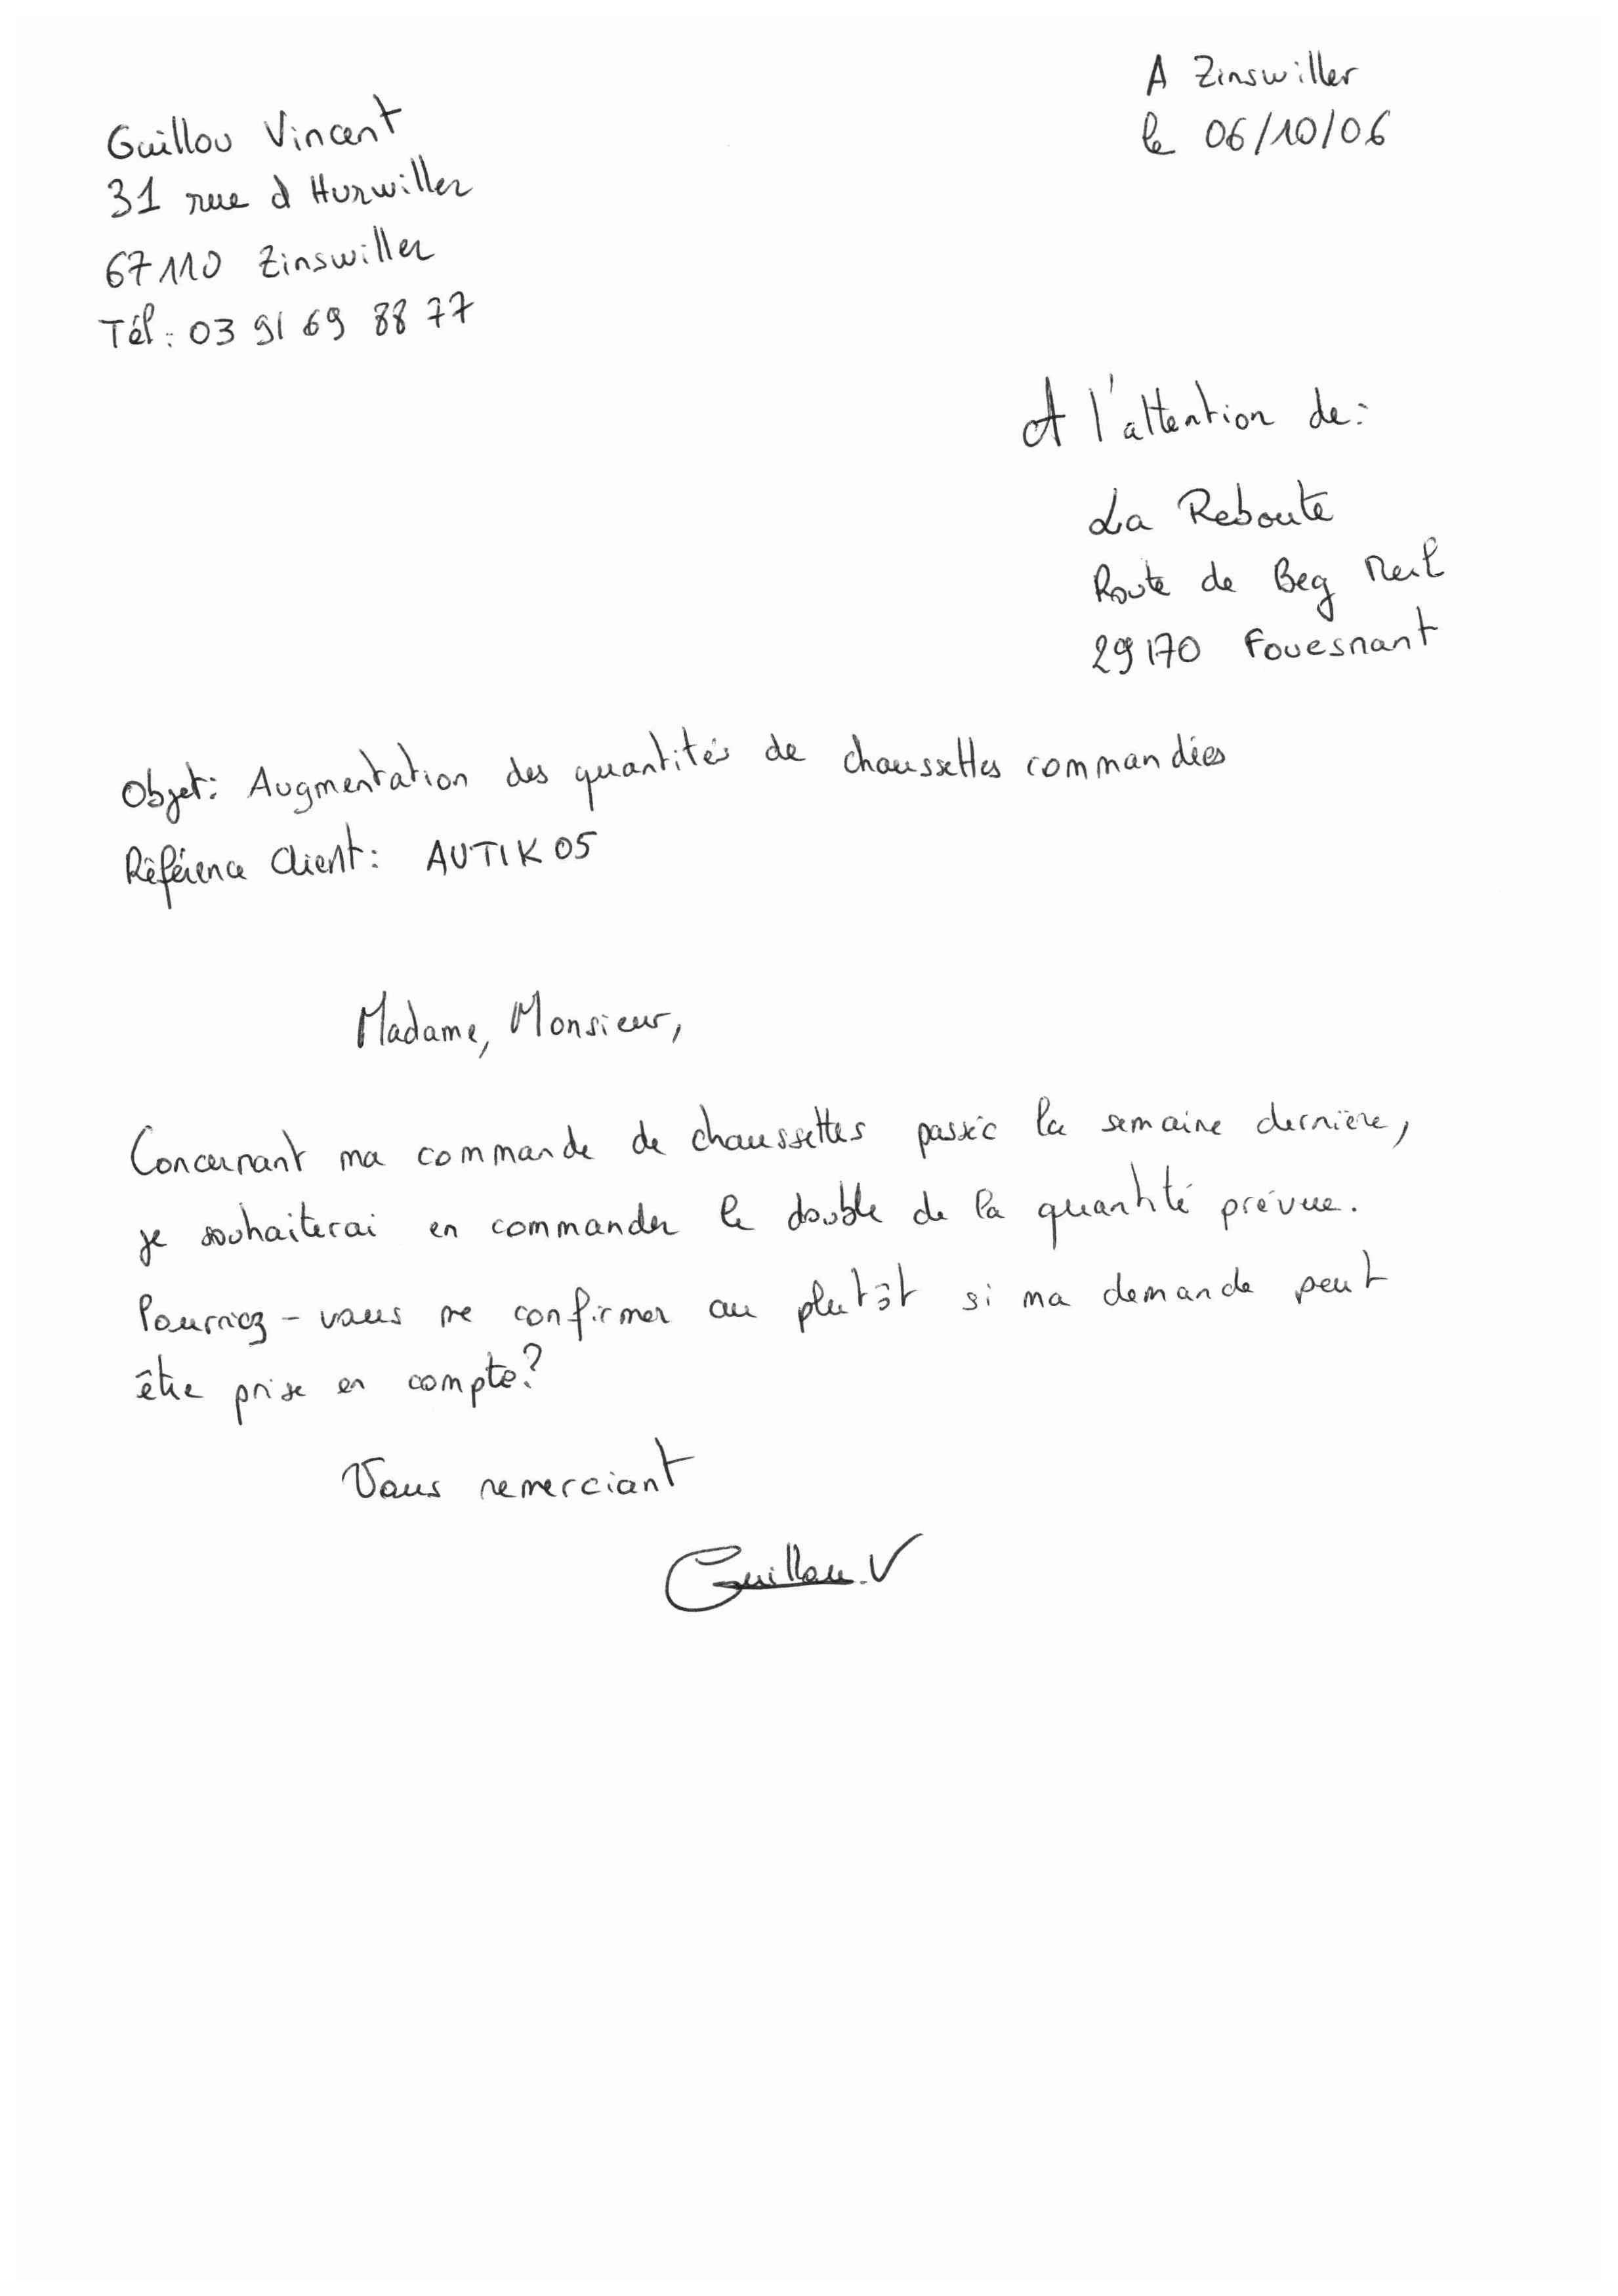 A Zinswiller
le 06/10/06
Guillou Vincent
31 rue d Hunwiller
67110 Zinswiller
Tél : 03 91 69 88 77
A l'attention de :
La Reboute
Route de Beg Meil
29170 Fouesnant
Objet : Augmentation des quantités de chaussettes commandées
Référence Client : AUTIK05
Madame, Monsieur,
Concernant ma commande de chaussettes passée la semaine dernière,
je souhaiterai en commander le double de la quantité prévue.
Pourriez-vous me confirmer au plutôt si ma demande peut
être prise en compte ?
Vous remerciant
Guillou.V